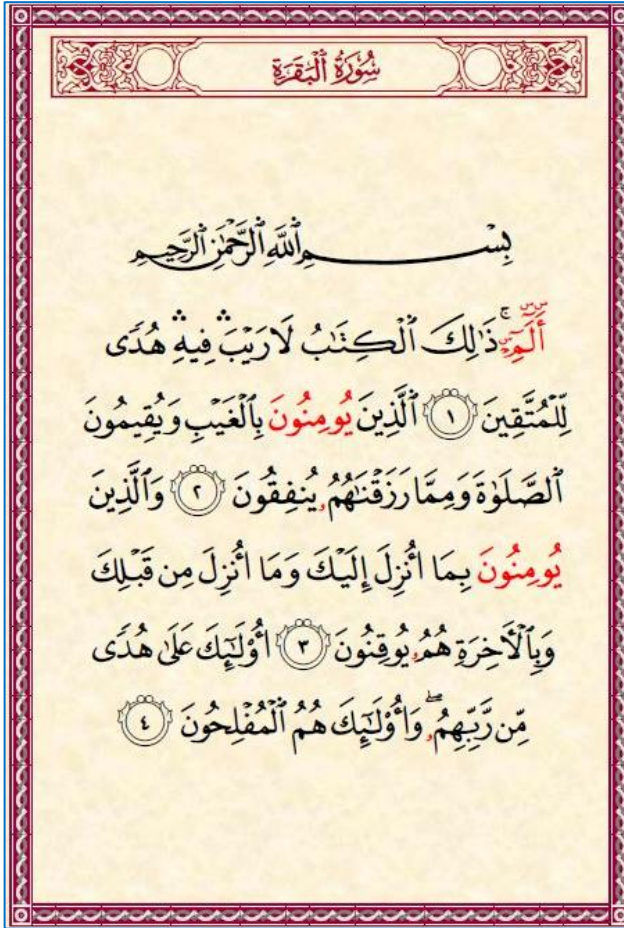 سُورَةُ ٱلْبَقَرَةِ
بِسْمِ ٱللَّهِ ٱلرَّحْمَٰنِ ٱلرَّحِيمِ
أَلَٓمِّٓۚ ذَٰلِكَ ٱلْكِتَٰبُ لَا رَيْبَ ۛ فِيهِ ۛ هُدًى
لِّلْمُتَّقِينَ ١ ٱلَّذِينَ يُومِنُونَ بِٱلْغَيْبِ وَيُقِيمُونَ
ٱلصَّلَوٰةَ وَمِمَّا رَزَقْنَٰهُمُۥ يُنفِقُونَ ٢ وَٱلَّذِينَ
يُومِنُونَ بِمَا أُنزِلَ إِلَيْكَ وَمَا أُنزِلَ مِن قَبْلِكَ
وَبِٱلْأَخِرَةِ هُمُۥ يُوقِنُونَ ٣ أُوْلَٰٓئِكَ عَلَىٰ هُدًى
مِّن رَّبِّهِمُۥۖ وَأُوْلَٰٓئِكَ هُمُ ٱلْمُفْلِحُونَ ٤